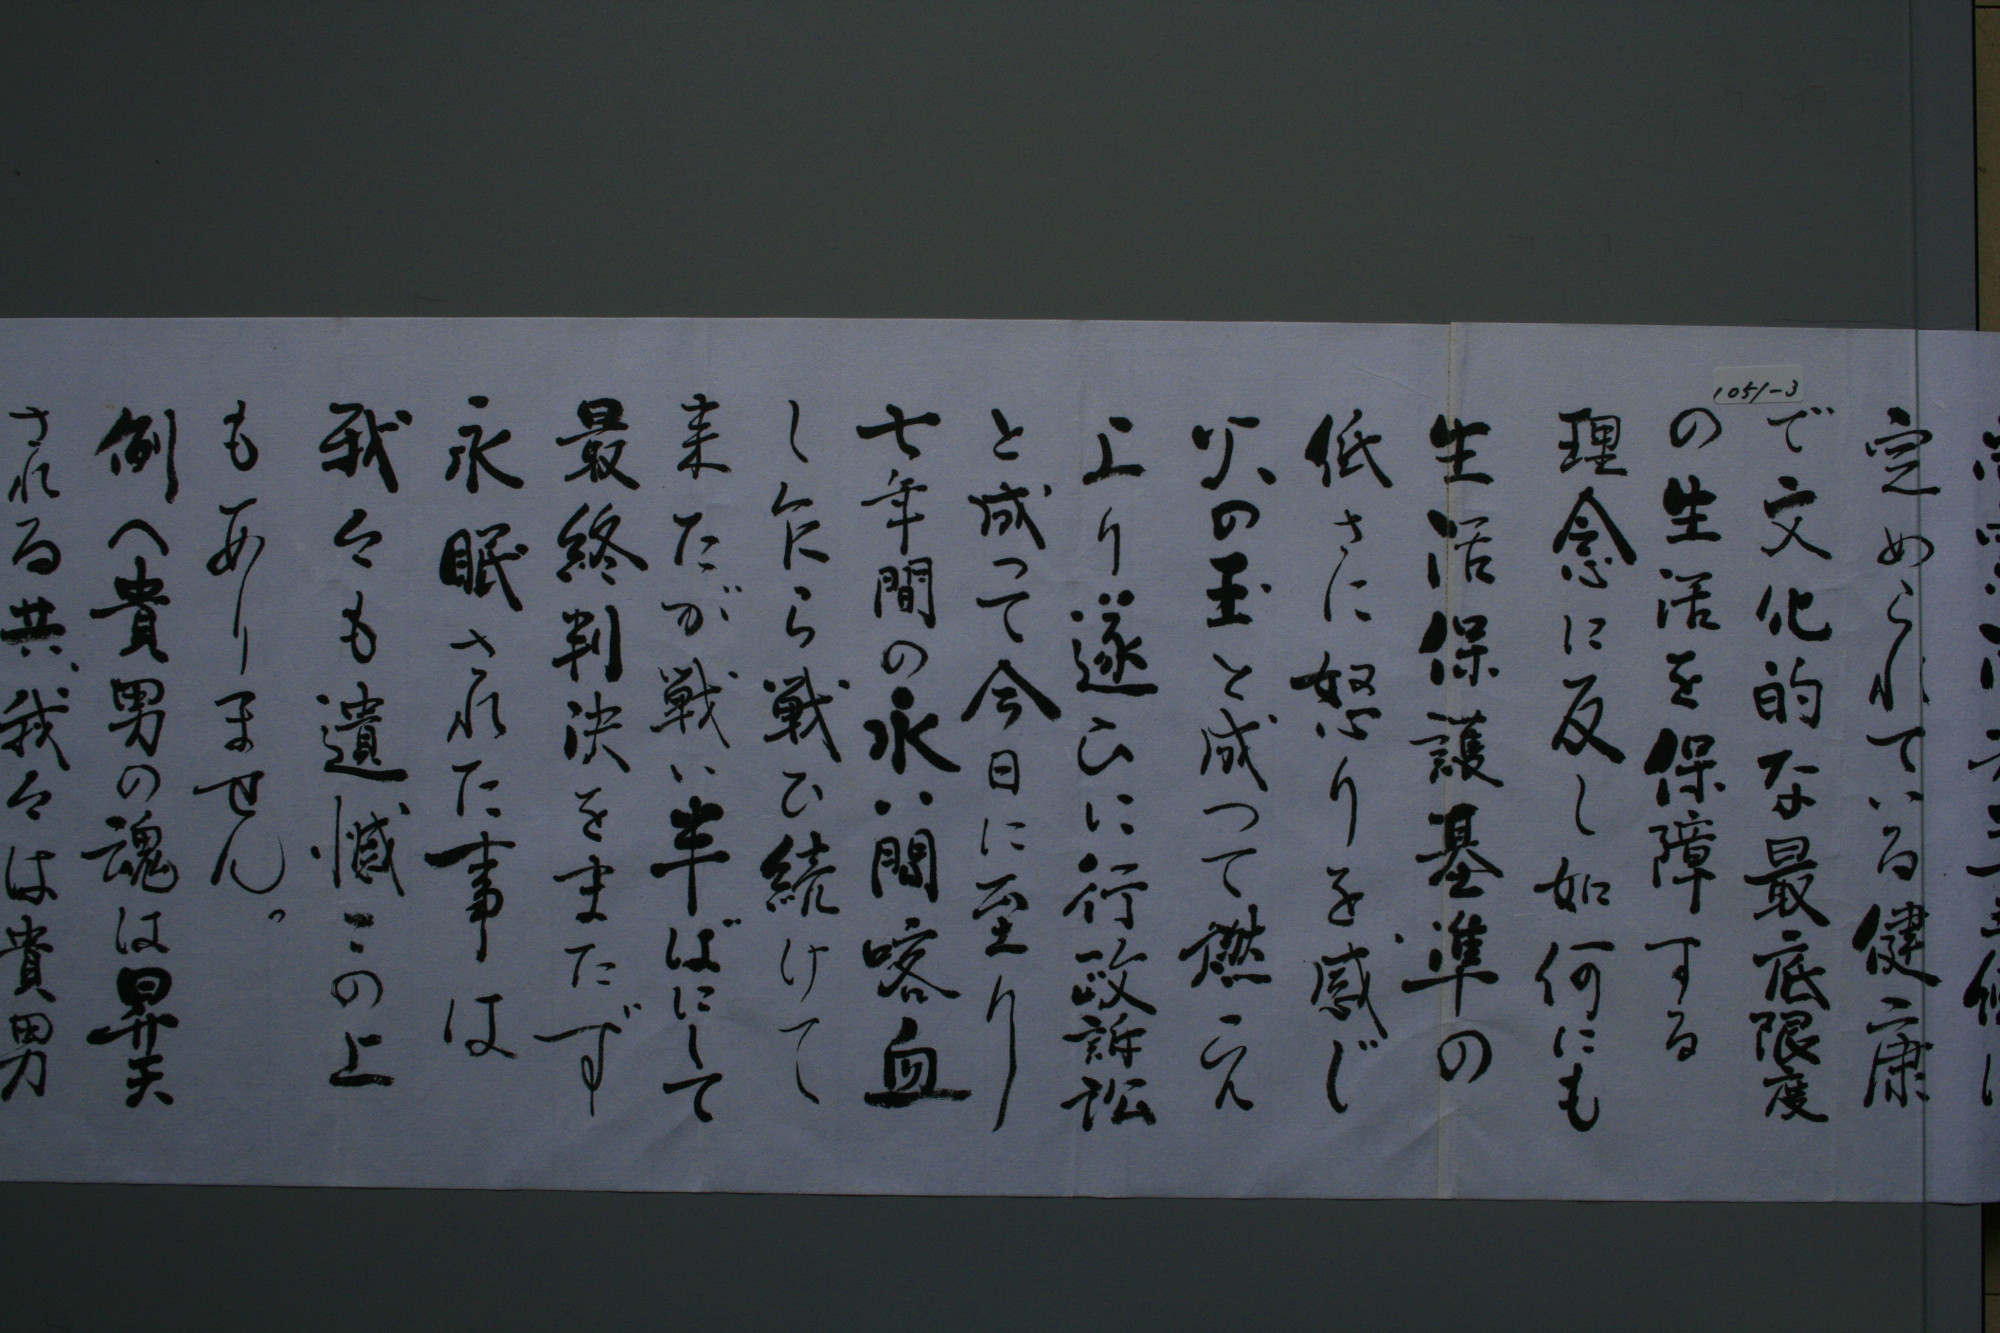 1051-3
定められている健康
で文化的な最底限度
の生活を保障する
理念に反し如何にも
生活保護基準の
低さに怒りを感じ
火の玉と成つて燃え
上り遂ひに行政訴訟
と成って今日に至り
七年間の永い間喀血
しながら戦ひ続けて
来たが戦い半ばにして
最終判決をまたず
永眠された事は
我々も遺憾この上
もありません。
例へ貴男の魂は昇天
される共、我々は貴男